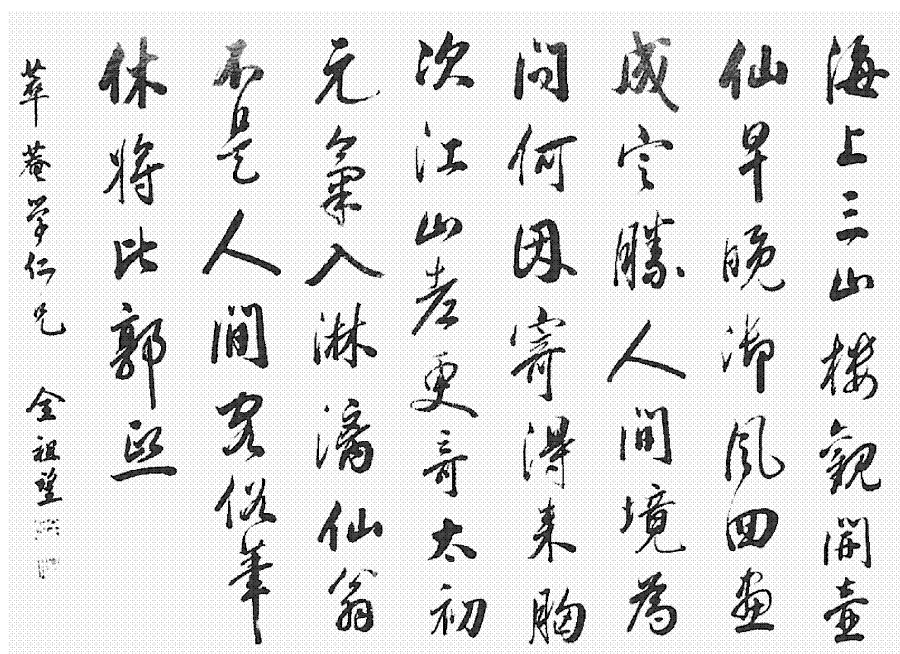 海上三山楼觀開壺
仙早晚御風回畫
成定勝人間境為
問何因寄得来胸
次江山老更奇太初
元氣入淋漓仙翁
不是人間容俗筆
休將比郭熙
萃菴学仁兄 金祖望